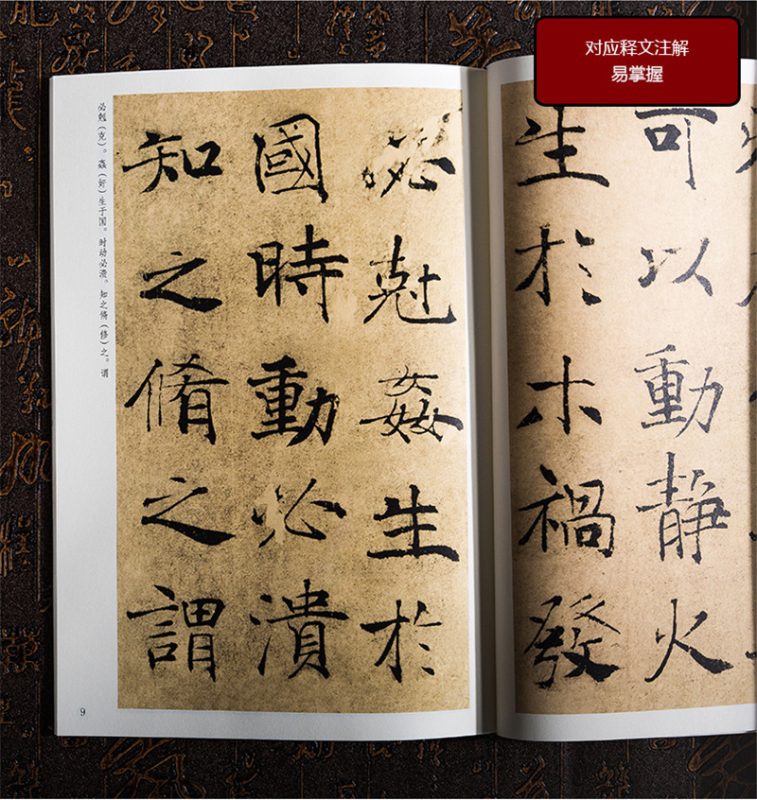 对应释文注解
易掌握
可以動靜火
生於木禍發
必尅姦生於
國時動必潰
知之脩之謂
必尅（克）。姦（奸）生于国。时动必溃。知之脩（修）之。谓
9